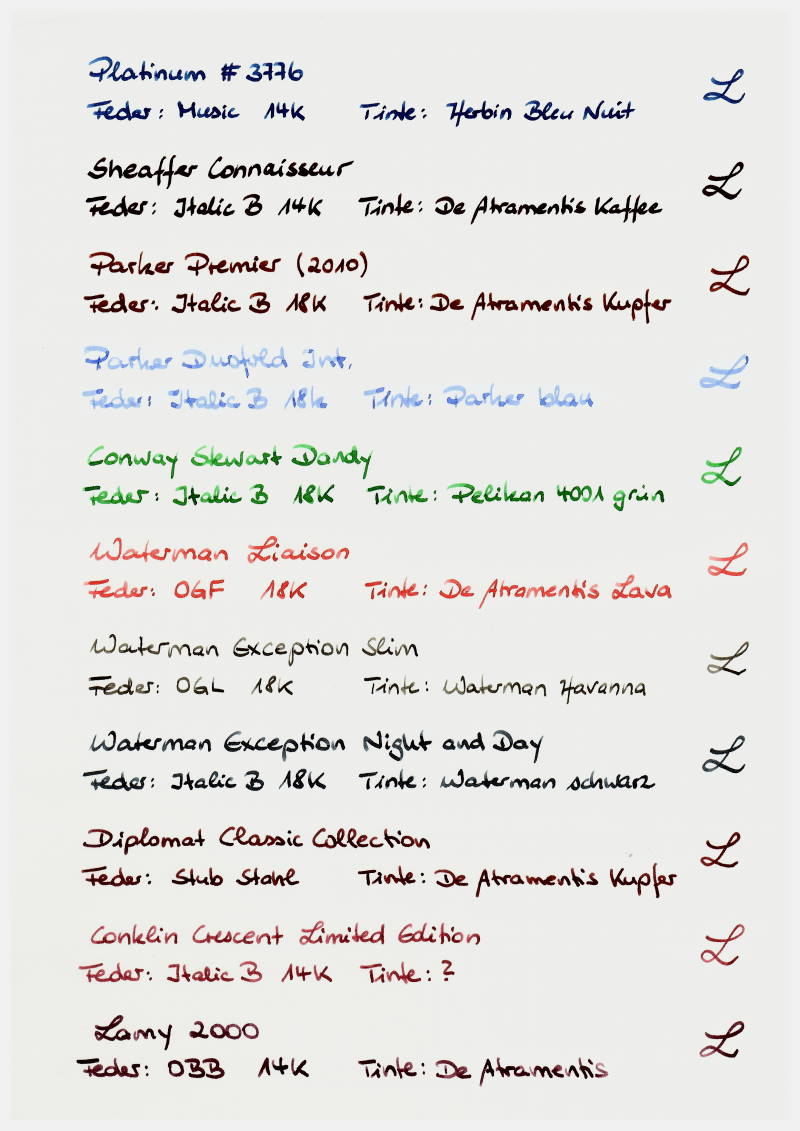 Platinum # 3776
Feder: Music 14K Tinte: Herbin Bleu Nuit L
Sheaffer Connaisseur
Feder: Italic B 14K Tinte: De Atramentis Kaffee L
Parker Premier (2010)
Feder: Italic B 18K Tinte: De Atramentis Kupfer L
Parker Duofold Int.
Feder: Italic B 18k Tinte: Parker blau L
Conway Stewart Dandy
Feder: Italic B 18K Tinte: Pelikan 4001 grün L
Waterman Liaison
Feder: OGF 18K Tinte: De Atramentis Lava L
Waterman Exception Slim
Feder: OGL 18K Tinte: Waterman Havanna L
Waterman Exception Night and Day
Feder: Italic B 18K Tinte: Waterman schwarz L
Diplomat Classic Collection
Feder: Stub Stahl Tinte: De Atramentis Kupfer L
Conklin Crescent Limited Edition
Feder: Italic B 14K Tinte: ? L
Lamy 2000
Feder: OBB 14K Tinte: De Atramentis L